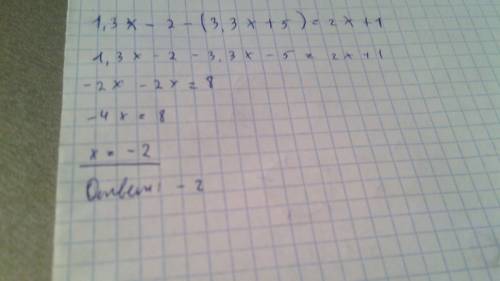 1,3x - 2 - (3,3x + 5) = 2x + 1
1,3x - 2 - 3,3x - 5 = 2x + 1
-2x - 2x = 8
-4x = 8
x = -2
Ответ: -2